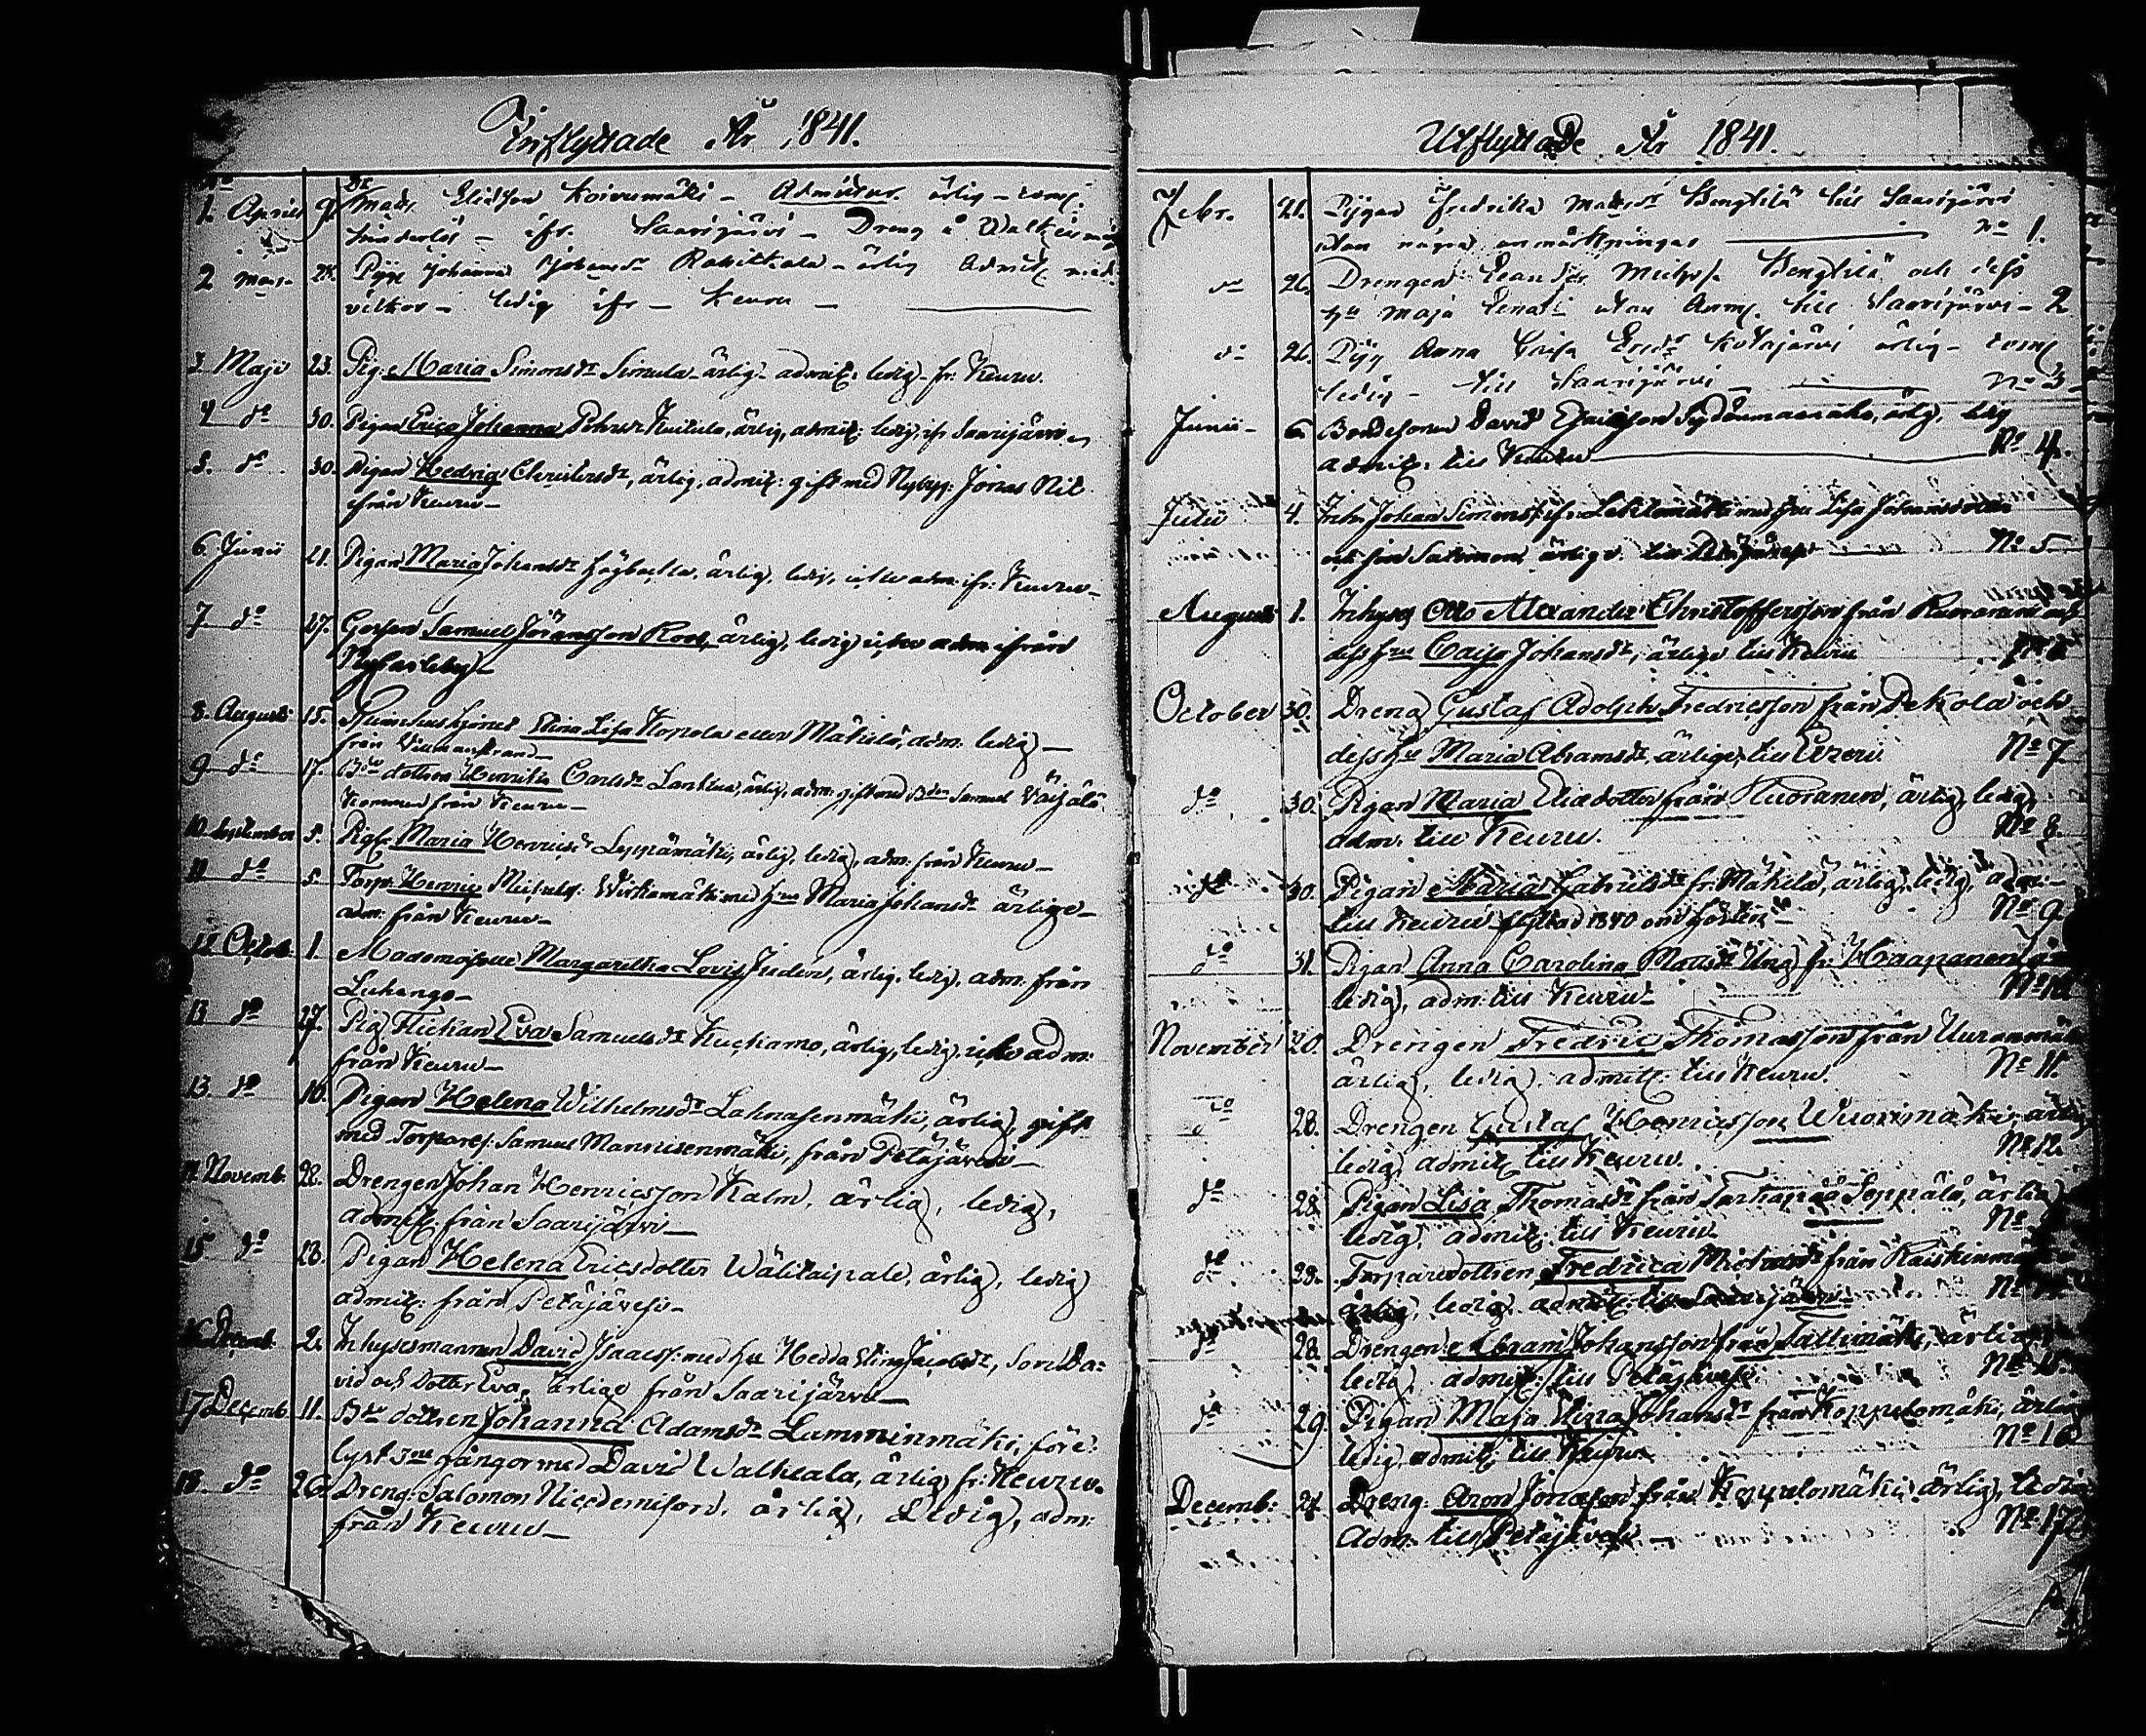 Inflyttade År 1841.
No
1. April 9. Dr Mats Eliæson Koivumäki - Admitteras ärlig - comm.
hinderlös - ifr. Saarijärvi - Dreng å
2 Maji 28. Pig. Johanna Johansdr - ärlig Admitt. med
vilkor - ledig ifr - Keuru -
3. Maji 23. Pig: Maria Simonsdr Simula - ärlig - admitt: ledig - fr. Keuru.
4 do 30. Pigan Erica Johanna ärlig, admitt: ledig, ifr Saarijärvi -
5. do 30. Pigan Hedvig Christersdr, ärlig, admitt: gift med Nybygg: Jonas Nik
ifrån Keuru -
6. Junii 21. Pigan Maria Johansdr Högbacka, ärlig, ledig, icke adm: ifr: Keuru -
7 do 27. Gossen Samuel Jöransson Roos, ärlig, ledig, icke adm: ifrån
Nykarleby -
8. Augusti 15. Stina Lisa Kopola eller Mäkelä, adm: ledig -
från Villmanstrand -
9 do 17. Bdedottren Henrika Carlsdr ärlig, adm: gift med Bden Samuel Väijälä
kommen från Keuru -
10 September 5. Pig. Maria Henricsdr Leppämäki, ärlig, ledig, adm: från Keuru -
11 do 5. Torp: Henric Michelss: med hru Maria Johansdr ärlige -
adm: från Keuru -
12 Octob: 1. Mademoiselle Margaretha Lovis ärlig, ledig, adm: från
Luhango -
13 do 27. Pig. flickan Eva Samuelsdr Kuckamo, ärlig, ledig, icke adm:
från Keuru -
13. do 10. Pigan Helena Wilhelmsdr Lahnasenmäki, ärlig, gift
med Torpares: Samuel Mannisenmäki, från Petäjävesi -
14 Novemb. 28. Drengen Johan Henricsson Kalm, ärlig, ledig,
admitt: från Saarijärvi -
15 do 28. Pigan Helena Ericsdotter Wälitaipale, ärlig, ledig
admitt: från Petäjävesi -
16 Decemb. 2. Inhysesmannen David Isaacss: med hu Hedda Stina Jacobsdr, Son Da=
vid och Dotter Eva, ärlige från Saarijärvi -
17 Decemb 11. Bdedottren Johanna Adamsdr Lamminmäki, före
lyst 3ne gångor med David Walkeala, ärlig, fr: Keuru.
18. do 26. Dreng: Salomon Nicodemison, ärlig, Ledig, adm:
från Keuru -
Utflyttade År 1841.
Febr. 21. Pigan Fredrika Matsdr Bengtilä till Saarijärvi
utan några anmärkningar No 1.
do 26. Drengen Leander Michelss. Bengtilä och dess
hu Maja Lena utan Anm. till Saarijärvi - 2
do 26. Pig Anna Caisa Ericsdr Kotajärvi ärlig - comm
ledig - till Saarijärvi - No 3
Junii - 6 Bondesonen David Ericsson Sydänmaanaho, ärlig, ledig
admitt: till Keuru No 4.
Julii 4. Inh: Johan Simonss: ifr: Lehtomäki med hu Lisa Johansdotter
och son Salomon, ärlige till Petäjävesi No 5
Augusti 1. Inhyses Otto Alexander Christoffersson från och
dess hru Caisa Johansdr, ärlige till Keuru No 6
October 30. Dreng Gustaf Adolph Fredricsson från Pekola och
dess hu Maria Abramsdr, ärlige, till Evzeru No 7
do 30. Pigan Maria Eliædotter från Kuoranen, ärlig, ledig,
adm: till Keuru. No 8.
do 30. Pigan Maria Gabrielsdr fr: Mäkelä, ärlig, ledig, adm:
till Keuru flyttad 1840 om hösten No 9
do 31. Pigan Anna Carolina Mattsdr Ung fr: Haapaniemi
ledig, adm: till Keuru No 10
November 20. Drengen Fredric Thomasson från Uuronmäki
ärlig, ledig, admitt: till Keuru. No 11.
do 28. Drengen Gustaf Henricsson Wuorimäki, ärlig
ledig, admitt: till Keuru. No 12.
do 28. Pigan Lisa Thomasdr från Tarhapää Seppälä, ärlig
ledig, admitt: till Keuru. No
do 28. Torparedottren Fredrica Michelsdr från
ärlig, ledig, admitt: till Saarijärvi No
do 28. Drengen Abram Johansson från Tallimäki, ärlig
ledig, admitt: till Petäjävesi No 15
do 29. Pigan Maja Stina Johansdr från Koppelomäki, ärlig
ledig, admitt: till Keuru No 16
Decemb: 27. Dreng: Aron Jonasson från Koppelomäki, ärlig, ledig
adm: till Petäjävesi - No 17